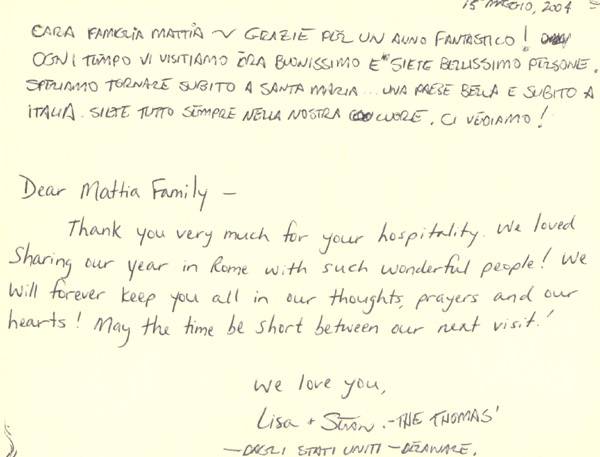 15 MAGGIO, 2004
CARA FAMIGLIA MATTIA ~ GRAZIE PER UN ANNO FANTASTICO!
OGNI TEMPO VI VISITIAMO ERA BUONISSIMO E SIETE BELLISSIMO PERSONE.
SPERIAMO TORNARE SUBITO A SANTA MARIA... UNA PAESE BELLA E SUBITO A
ITALIA. SIETE TUTTO SEMPRE NELLA NOSTRA CUORE. CI VEDIAMO!
Dear Mattia Family -
Thank you very much for your hospitality. We loved
sharing our year in Rome with such wonderful people! We
will forever keep you all in our thoughts, prayers and our
hearts! May the time be short between our next visit!
We love you,
Lisa + - THE THOMAS'
- DAGLI STATI UNITI - DELAWARE.